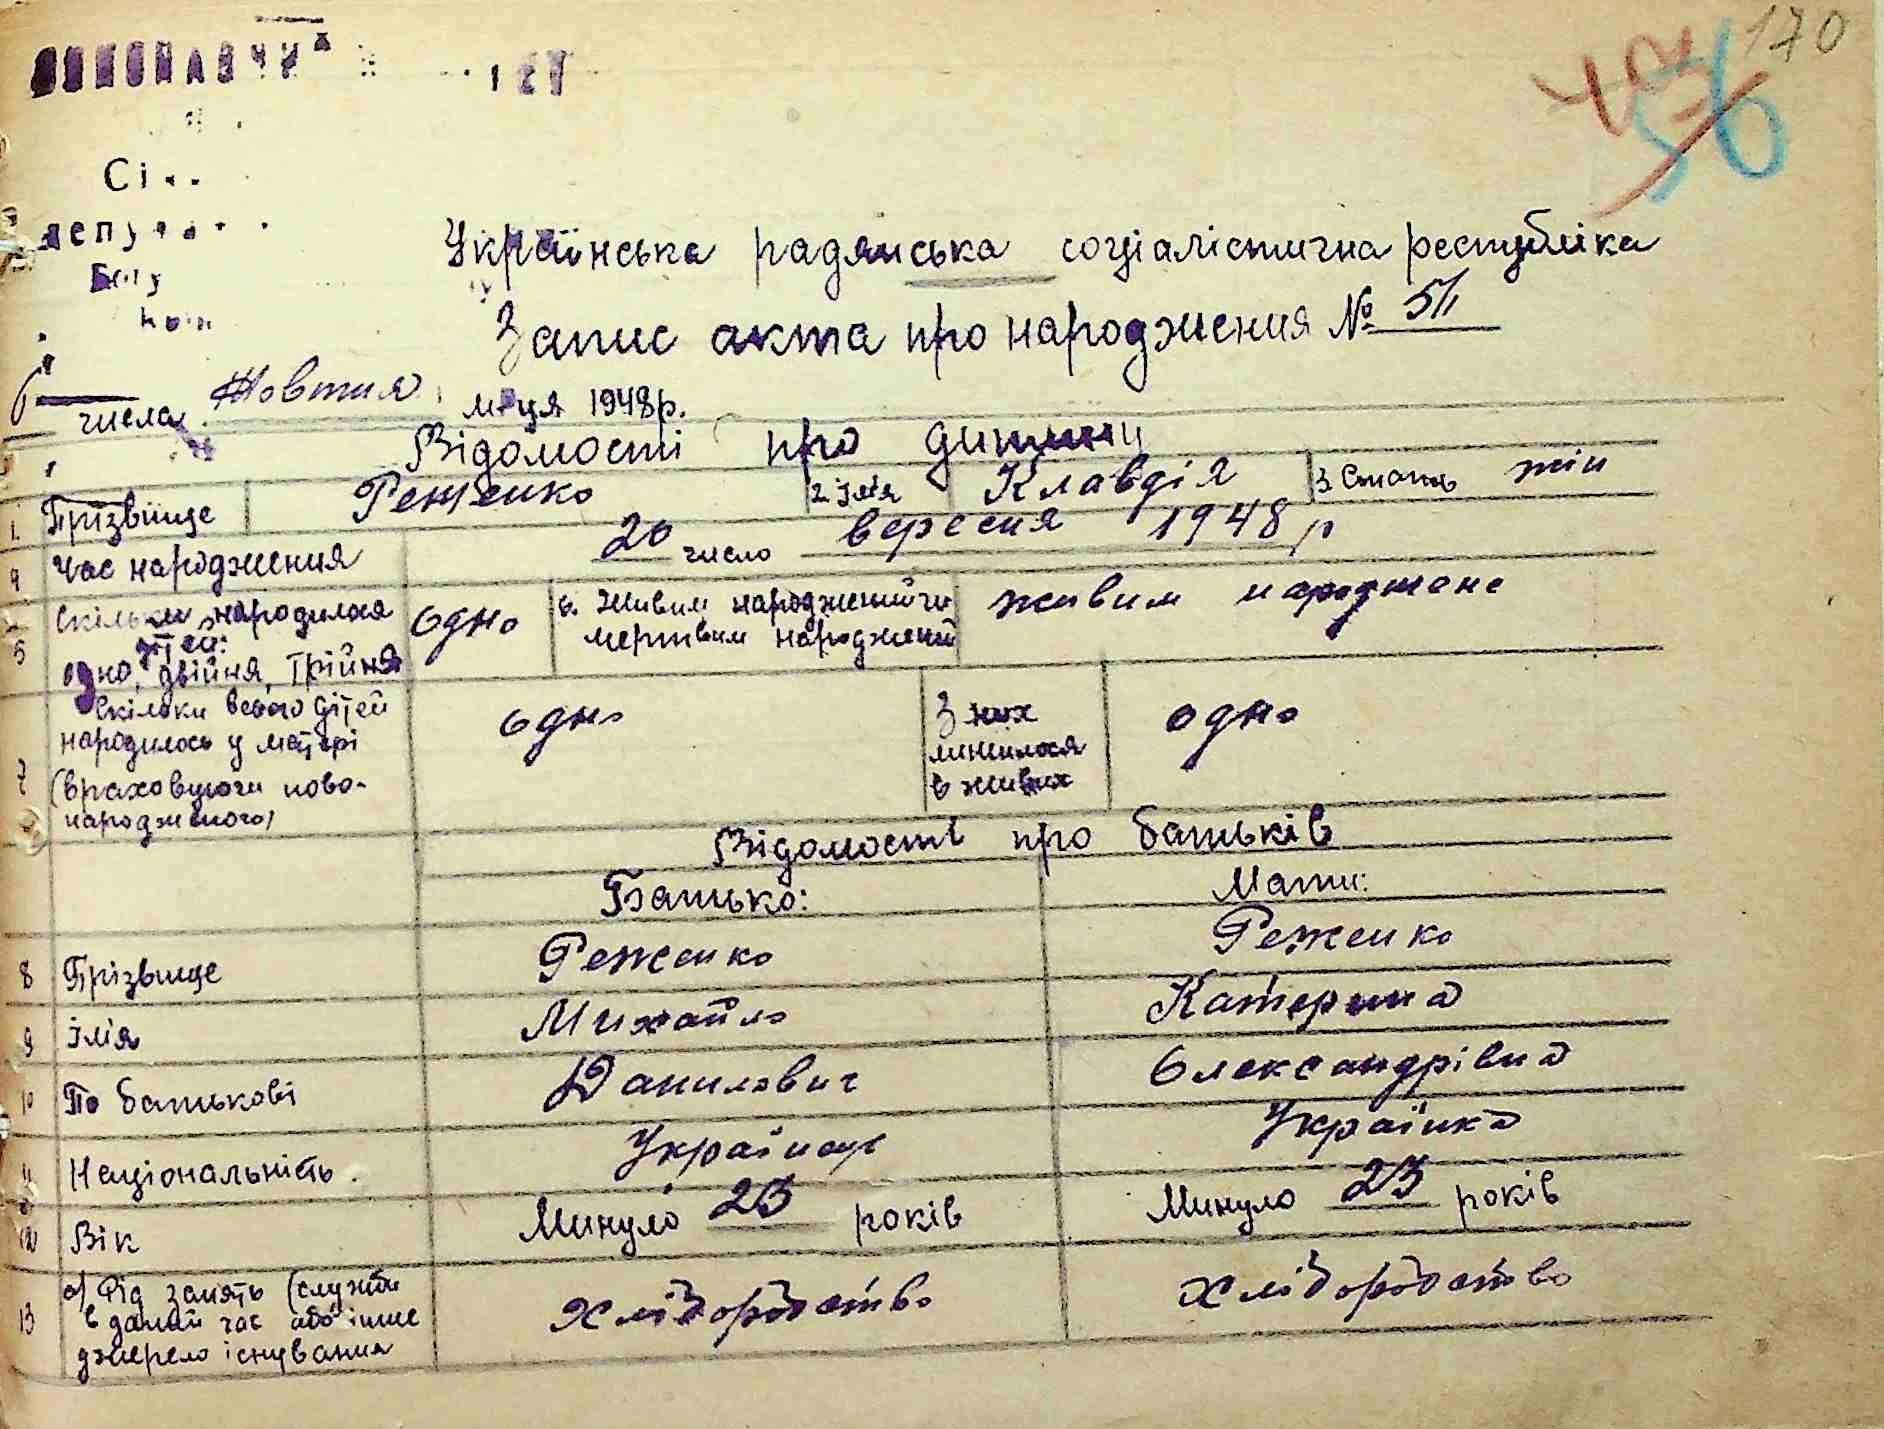 170
56
Українська радянська соціалістична республіка
Запис акта про народження №
6 числа Жовтня м-ця 1948р.
Відомості про дитину
1. Прізвище Реженко 2 Імя Клавдія 3 Стать жін
4 Час народження 20 число вересня 1948 р
5 Скільки народилося дітей: одно, двійня, трійня одно 6. Живим народжений чи мертвим народжений живим народжене
7 Скільки всього дітей народилось у матері (враховуючи новонародженого) одно З них лишилося в живих одно
Відомості про батьків
Батько: Мати:
8 Прізвище Реженко Реженко
9 Імя Михайло Катерина
10 По батькові Данилович Олександрівна
11 Національність. Українец Українка
12 Вік Минуло 23 років Минуло 23 років
13 а) Рід занять (служби в даний час або інше джерело існування хліборобство хліборобство